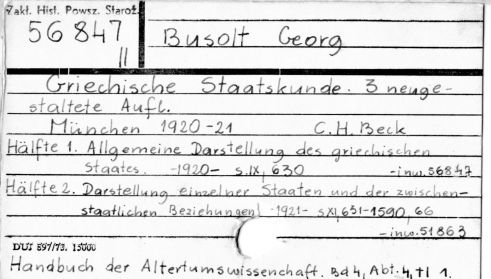 Zakł. Hist. Powsz. Staroż.
56847
II
Busolt Georg
Griechische Staatskunde. 3 neuge-
staltete Aufl.
München 1920-21 C.H. Beck
Hälfte 1. Allgemeine Darstellung des griechischen
Staates. -1920- s.IX, 630 -inw. 56847
Hälfte 2. Darstellung einzelner Staaten und der zwischen-
staatlichen Beziehungen -1921- s XI, 631-1590, 66
-inw. 51863
DUJ 897/73. 15000
Handbuch der Altertumswissenschaft. Bd 4, Abt. 4, Tl 1.